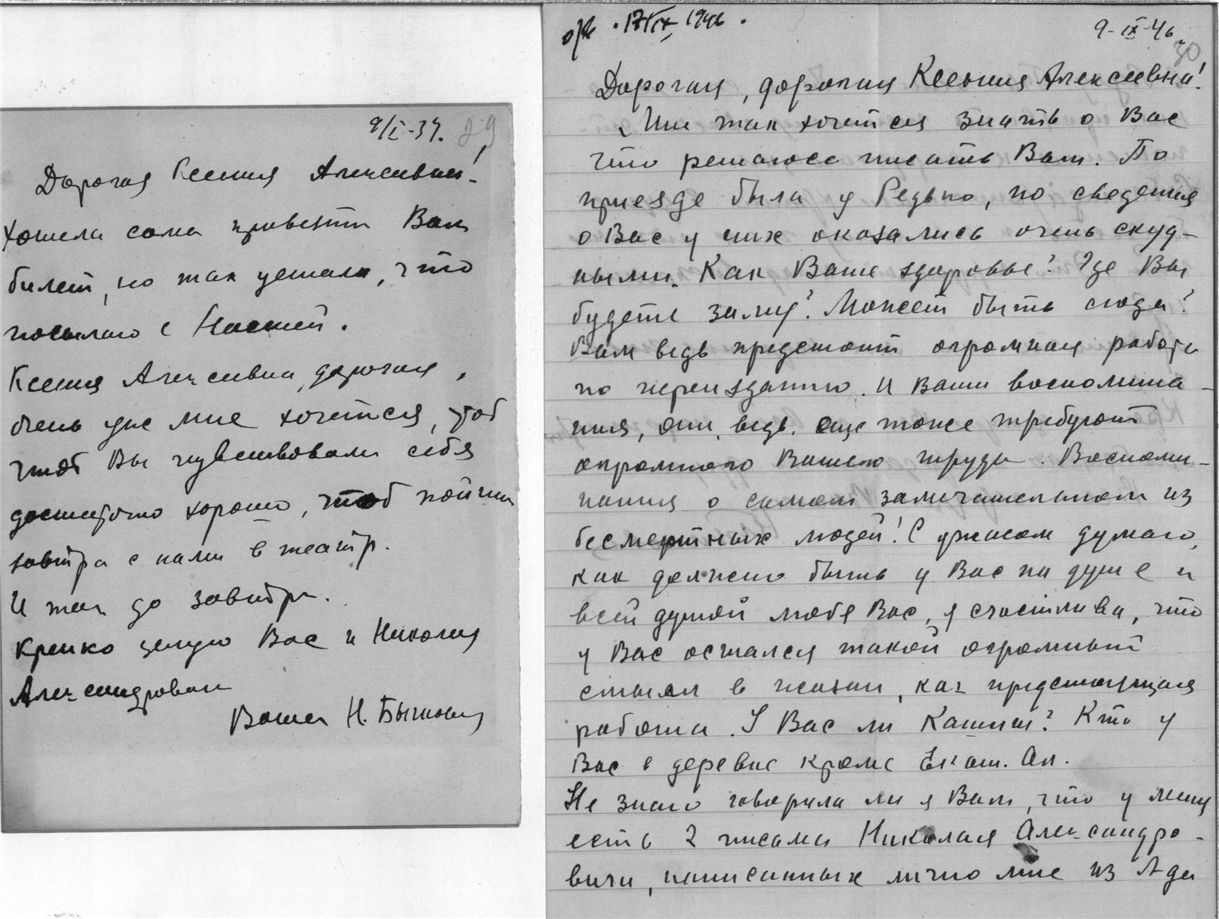 9/I-37.
29
Дорогая Ксения Алексеевна!
Хотела сама привезти Вам
билет, но так устала, что
посылаю с Настей.
Ксения Алексеевна, дорогая,
очень уже мне хочется, чтоб
чтоб Вы чувствовали себя
достаточно хорошо, чтоб пойти
завтра с нами в театр.
И так до завтра.
Крепко целую Вас и Николая
Александровича
Ваша Н.
отв. 17/IX 1946.
9-IX-46.
30
Дорогая, дорогая Ксения Алексеевна!
Мне так хочется знать о Вас
что решаюсь писать Вам. По
приезде была у Редько, но сведения
о Вас у них оказались очень скуд-
ными. Как Ваше здоровье? Где Вы
будете зиму? Может быть сюда?
Вам ведь предстоит огромная работа
по переизданию. И Ваши воспомина-
ния, они ведь еще тоже требуют
огромного Вашего труда. Воспоми-
нания о самом замечательном из
бесмертных людей! С ужасом думаю,
как должно быть у Вас на душе и
всей душой любя Вас, я счастлива, что
у Вас остался такой огромный
смысл в жизни, как предстоящая
работа. У Вас ли Кашин? Кто у
Вас в деревне кроме Екат. Ал.
Не знаю говорила ли я Вам, что у меня
есть 2 письма Николая Александро-
вича, написанных лично мне из